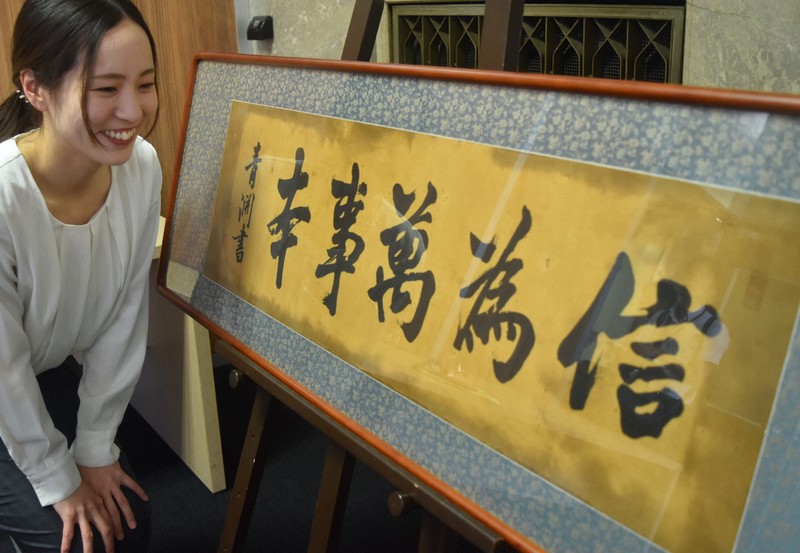 信為萬事本
青淵書